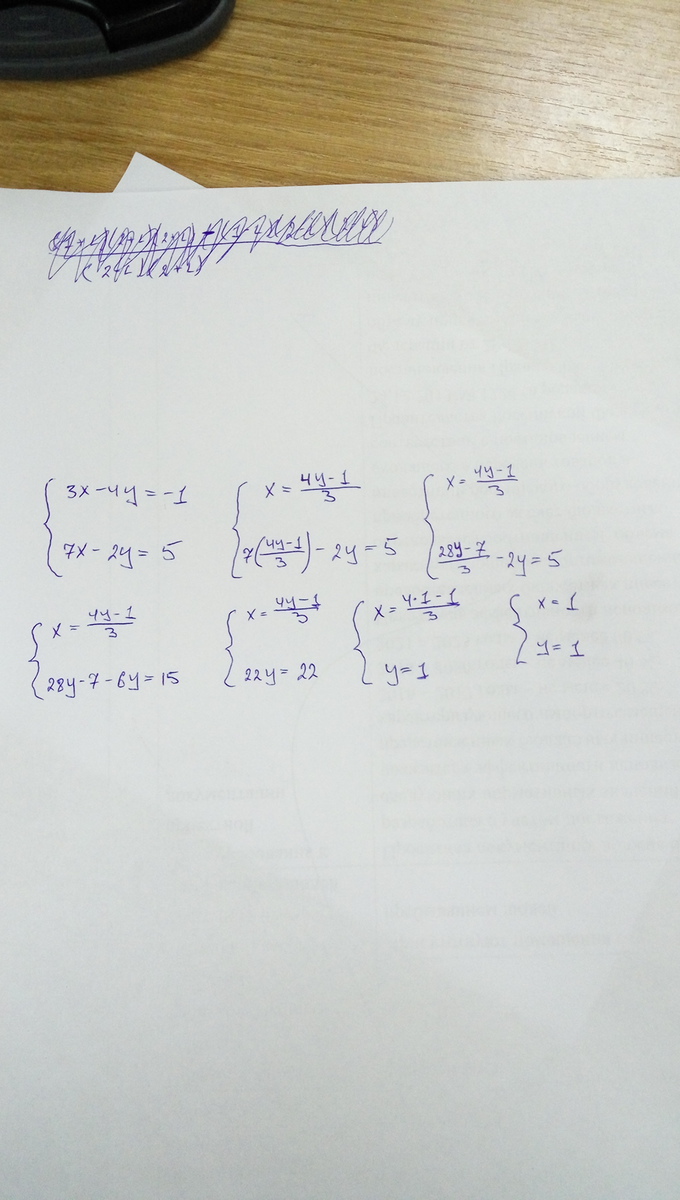 { 3x-4y=-1
7x-2y=5
{ x=(4y-1)/3
7((4y-1)/3)-2y=5
{ x=(4y-1)/3
(28y-7)/3-2y=5
{ x=(4y-1)/3
28y-7-6y=15
{ x=(4y-1)/3
22y=22
{ x=(4·1-1)/3
y=1
{ x=1
y=1